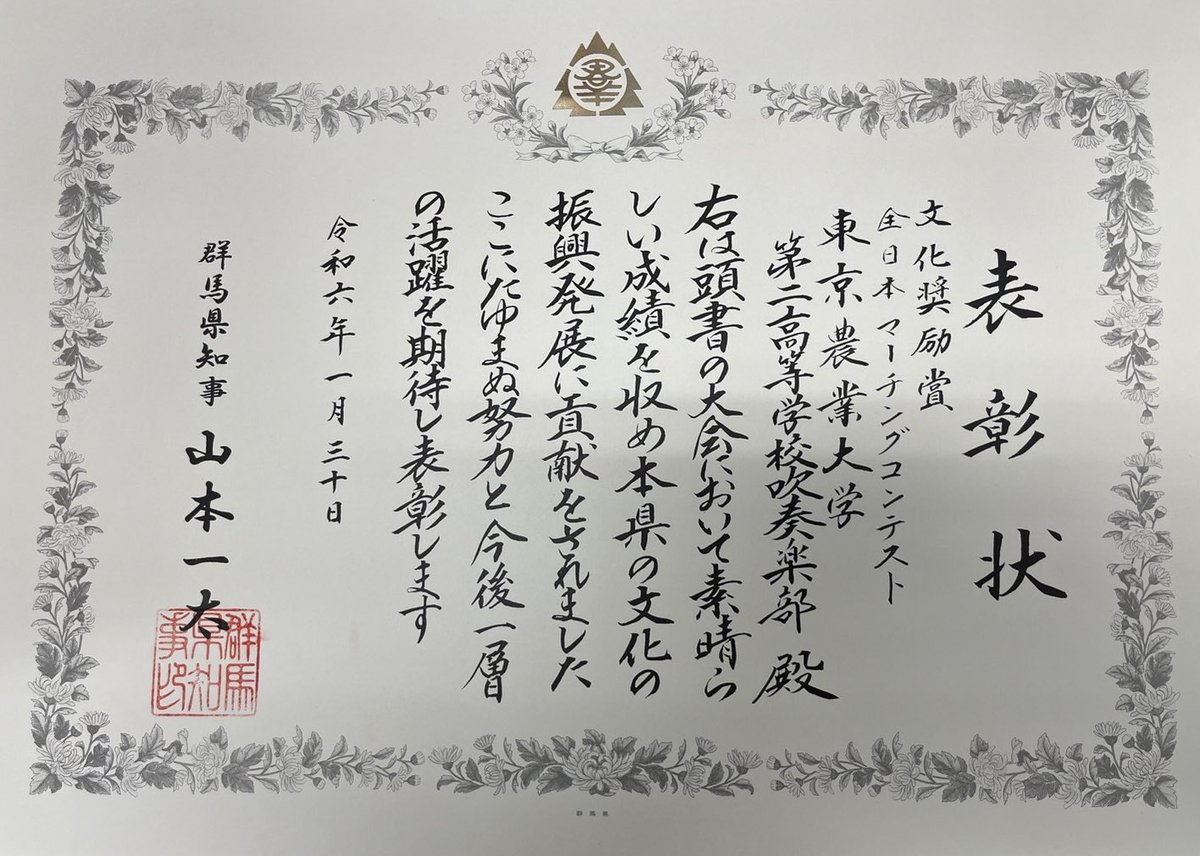 表彰状
文化奨励賞
全日本マーチングコンテスト
東京農業大学
第二高等学校吹奏楽部 殿
右は頭書の大会において素晴ら
しい成績を収め本県の文化の
振興発展に貢献をされました
ここにたゆまぬ努力と今後一層
の活躍を期待し表彰します
令和六年一月三十日
群馬県知事 山本一太
群馬
県知
事印
群馬県